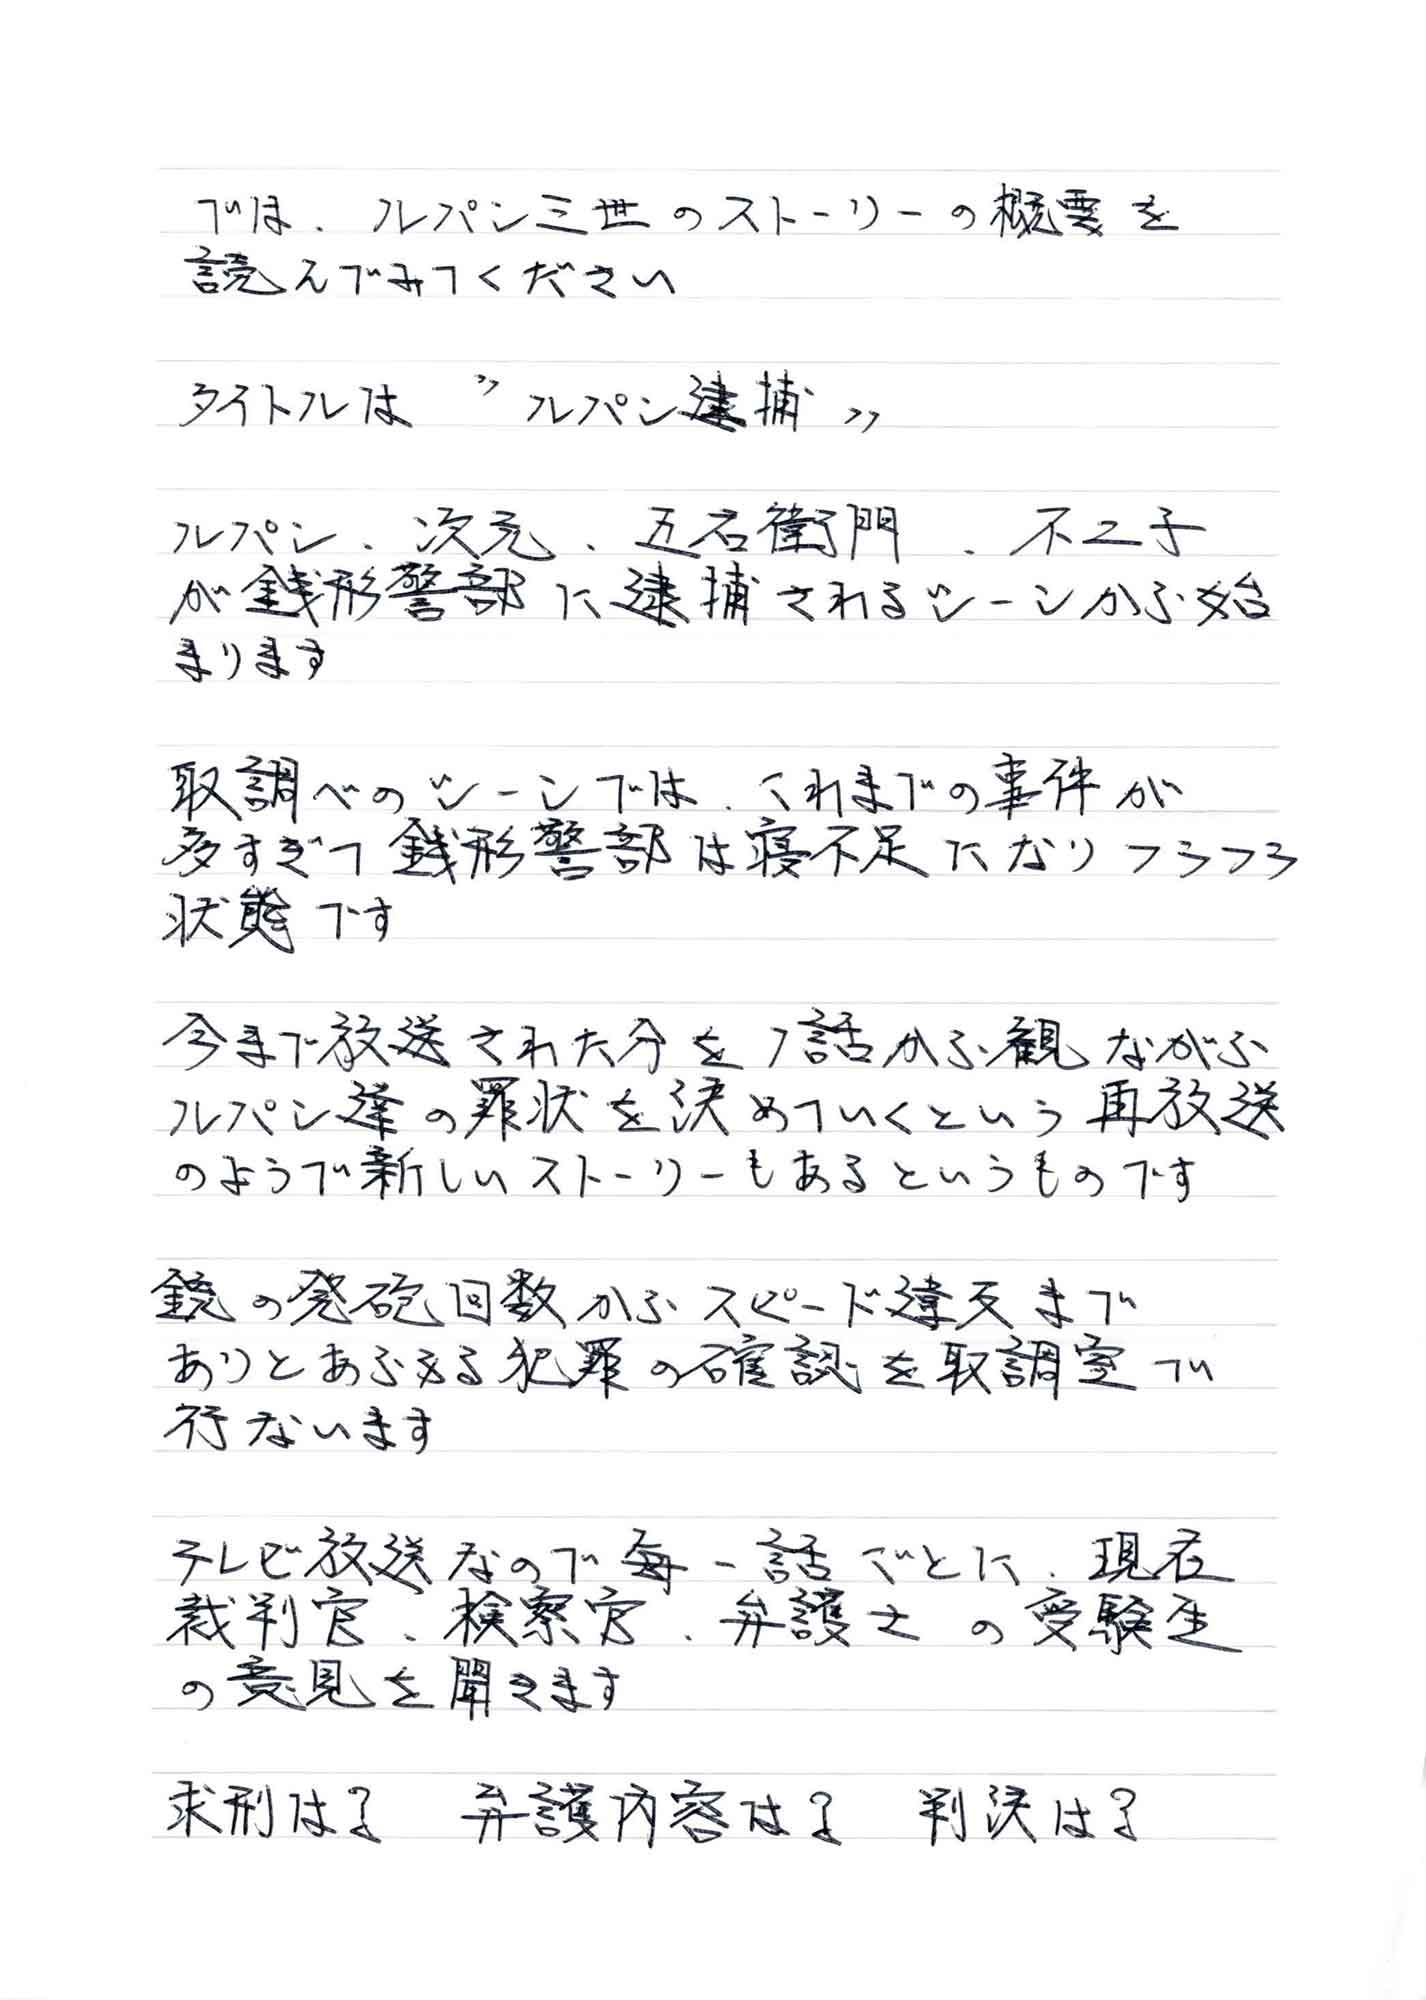 では、ルパン三世のストーリーの概要を
読んでみてください
タイトルは〝ルパン逮捕〟
ルパン、次元、五右衛門、不二子
が銭形警部に逮捕されるシーンから始
まります
取調べのシーンでは、これまでの事件が
多すぎて銭形警部は寝不足になりフラフラ
状態です
今まで放送された分を1話から観ながら
ルパン達の罪状を決めていくという再放送
のようで新しいストーリーもあるというものです
銃の発砲回数からスピード違反まで
ありとあらゆる犯罪の確認を取調室で
行ないます
テレビ放送なので毎一話ごとに、現在
裁判官、検察官、弁護士の受験生
の意見を聞きます
求刑は? 弁護内容は? 判決は?